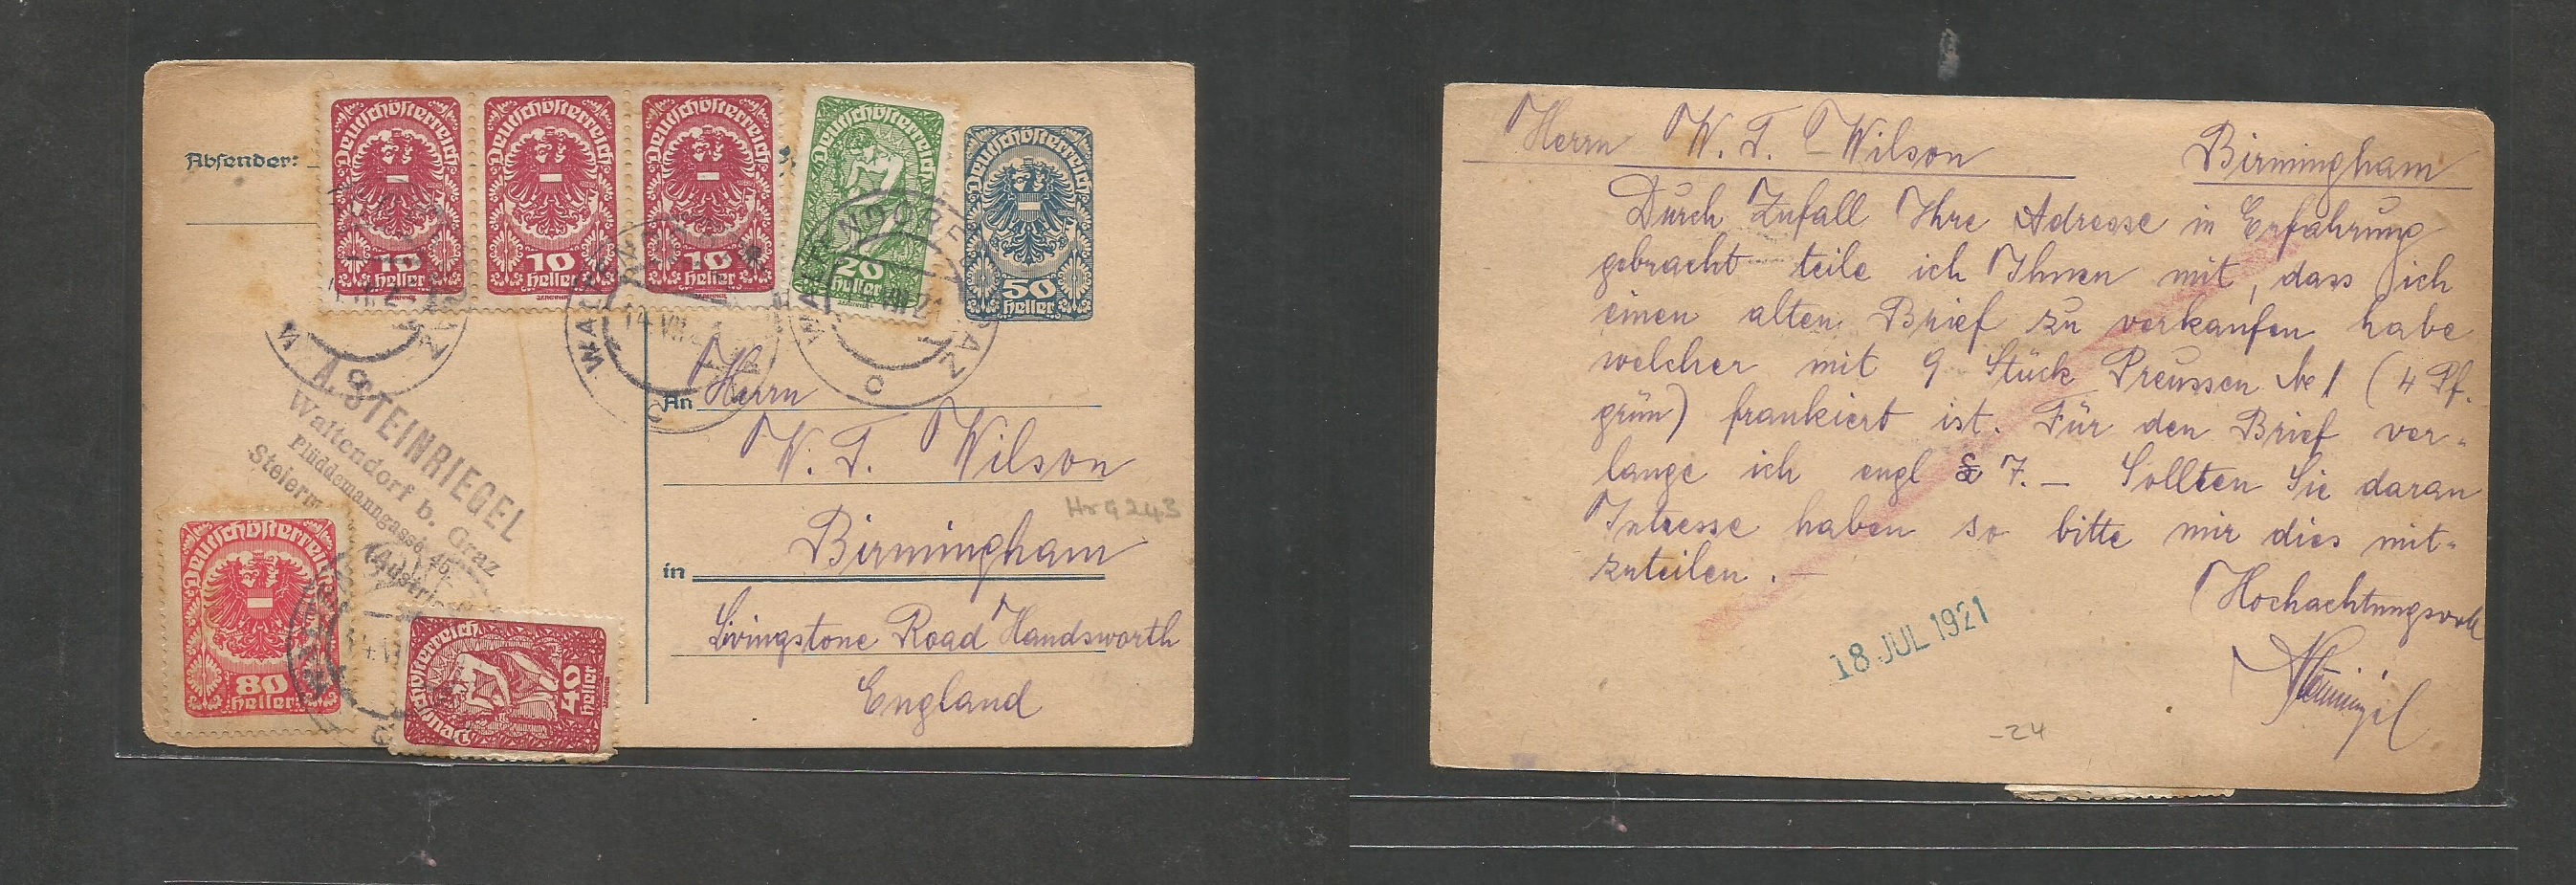 Absender:
Deutschösterreich
10
Heller
Deutschösterreich
10
Heller
Deutschösterreich
10
Heller
Deutschösterreich
20
Heller
Deutschösterreich
50
Heller
WALTENDORF
14 VII
A. STEINRIEGEL
Waltendorf b. Graz
Plüddemanngasse 45
Steierm
Deutschösterreich
80
Heller
Deutschösterreich
40
Heller
An Herrn
W. T. Wilson
Hr G 243
in Birmingham
Livingstone Road Handsworth
England
Herrn W. T. Wilson Birmingham
Durch Zufall Ihre Adresse in Erfahrung
gebracht teile ich Ihnen mit, dass ich
einen alten Brief zu verkaufen habe
welcher mit 9 Stück Preussen № 1 (4 Pf.
grün) frankiert ist. Für den Brief ver-
lange ich engl 7.–
Sollten Sie daran
Intresse haben so bitte mir dies mit-
zuteilen.–
Hochachtungsvoll
18 JUL 1921
-24